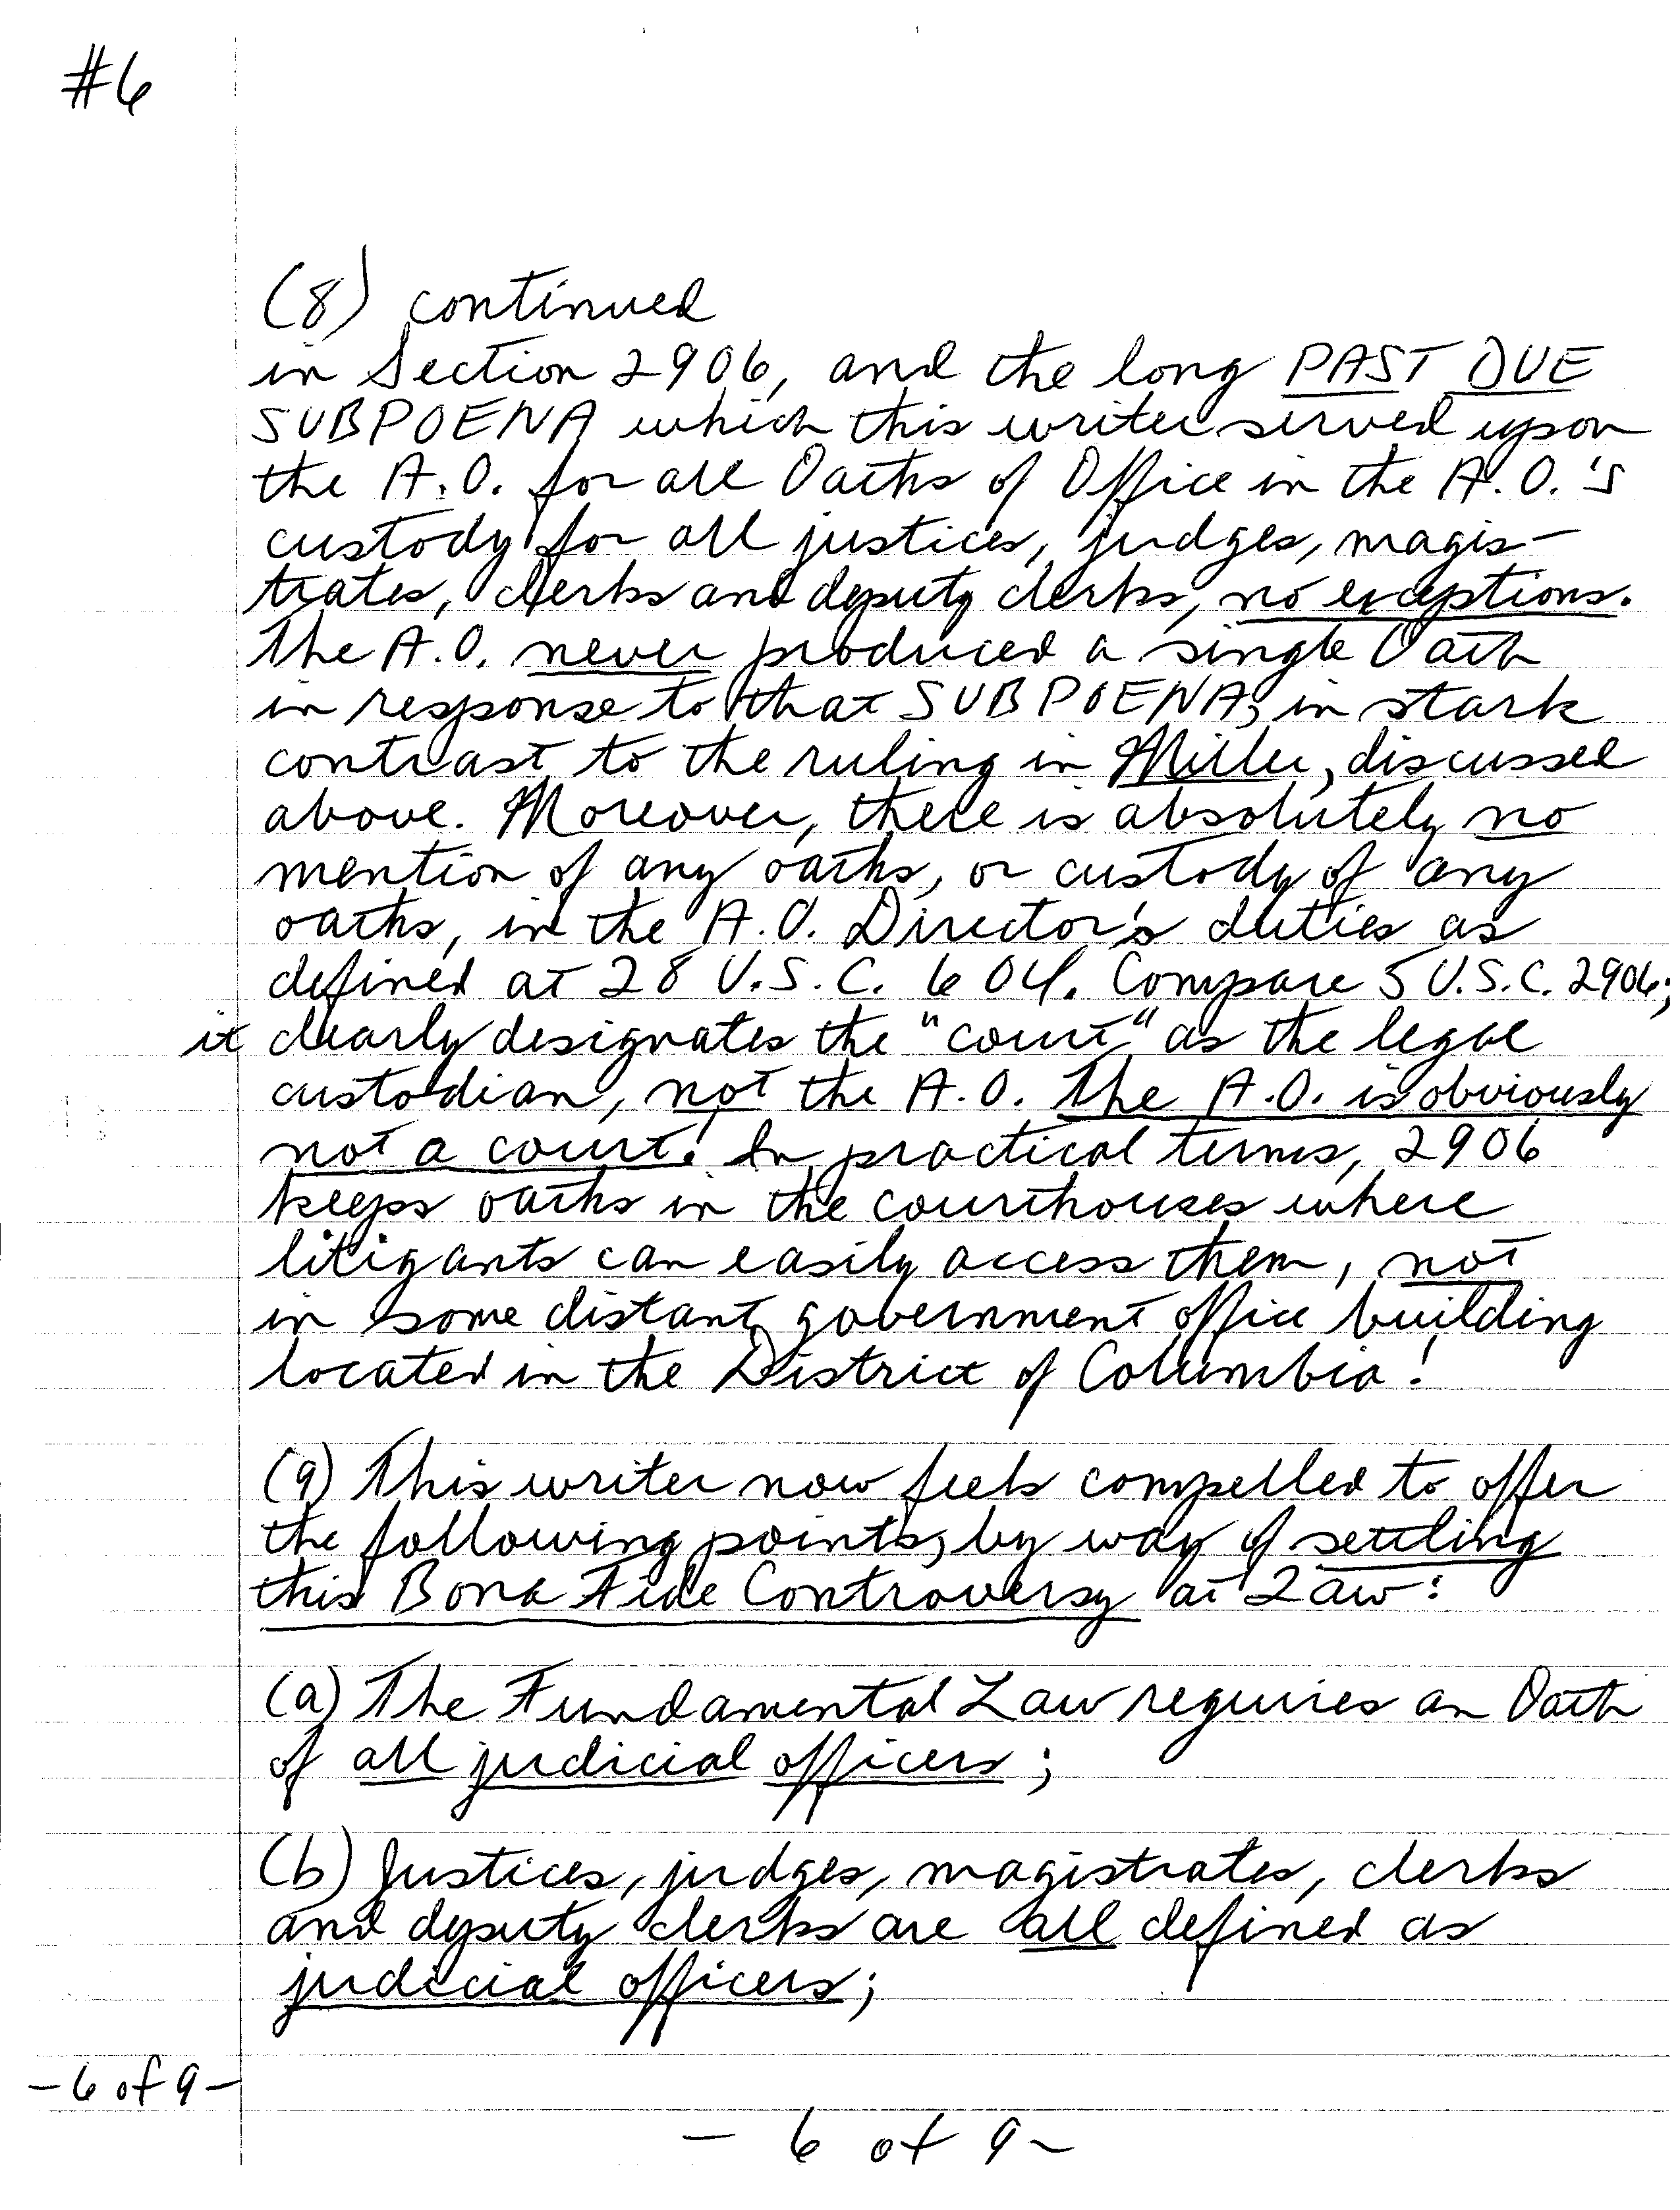 #6
(8) continued
in Section 2906, and the long PAST DUE
SUBPOENA which this writer served upon
the A.O. for all Oaths of Office in the A.O.'s
custody for all justices, judges, magis-
trates, clerks and deputy clerks, no exceptions.
The A.O. never produced a single Oath
in response to that SUBPOENA, in stark
contrast to the ruling in Miller, discussed
above. Moreover, there is absolutely no
mention of any oaths, or custody of any
oaths, in the A.O. Director's duties as
defined at 28 U.S.C. 604. Compare 5 U.S.C. 2906;
it clearly designates the "court" as the legal
custodian, not the A.O. The A.O. is obviously
not a court! In practical terms, 2906
keeps oaths in the courthouses where
litigants can easily access them, not
in some distant government office building
located in the District of Columbia!
(9) This writer now feels compelled to offer
the following points, by way of settling
this Bona Fide Controversy at Law:
(a) The Fundamental Law requires an Oath
of all judicial officers;
(b) Justices, judges, magistrates, clerks
and deputy clerks are all defined as
judicial officers;
-6 of 9-
- 6 of 9-